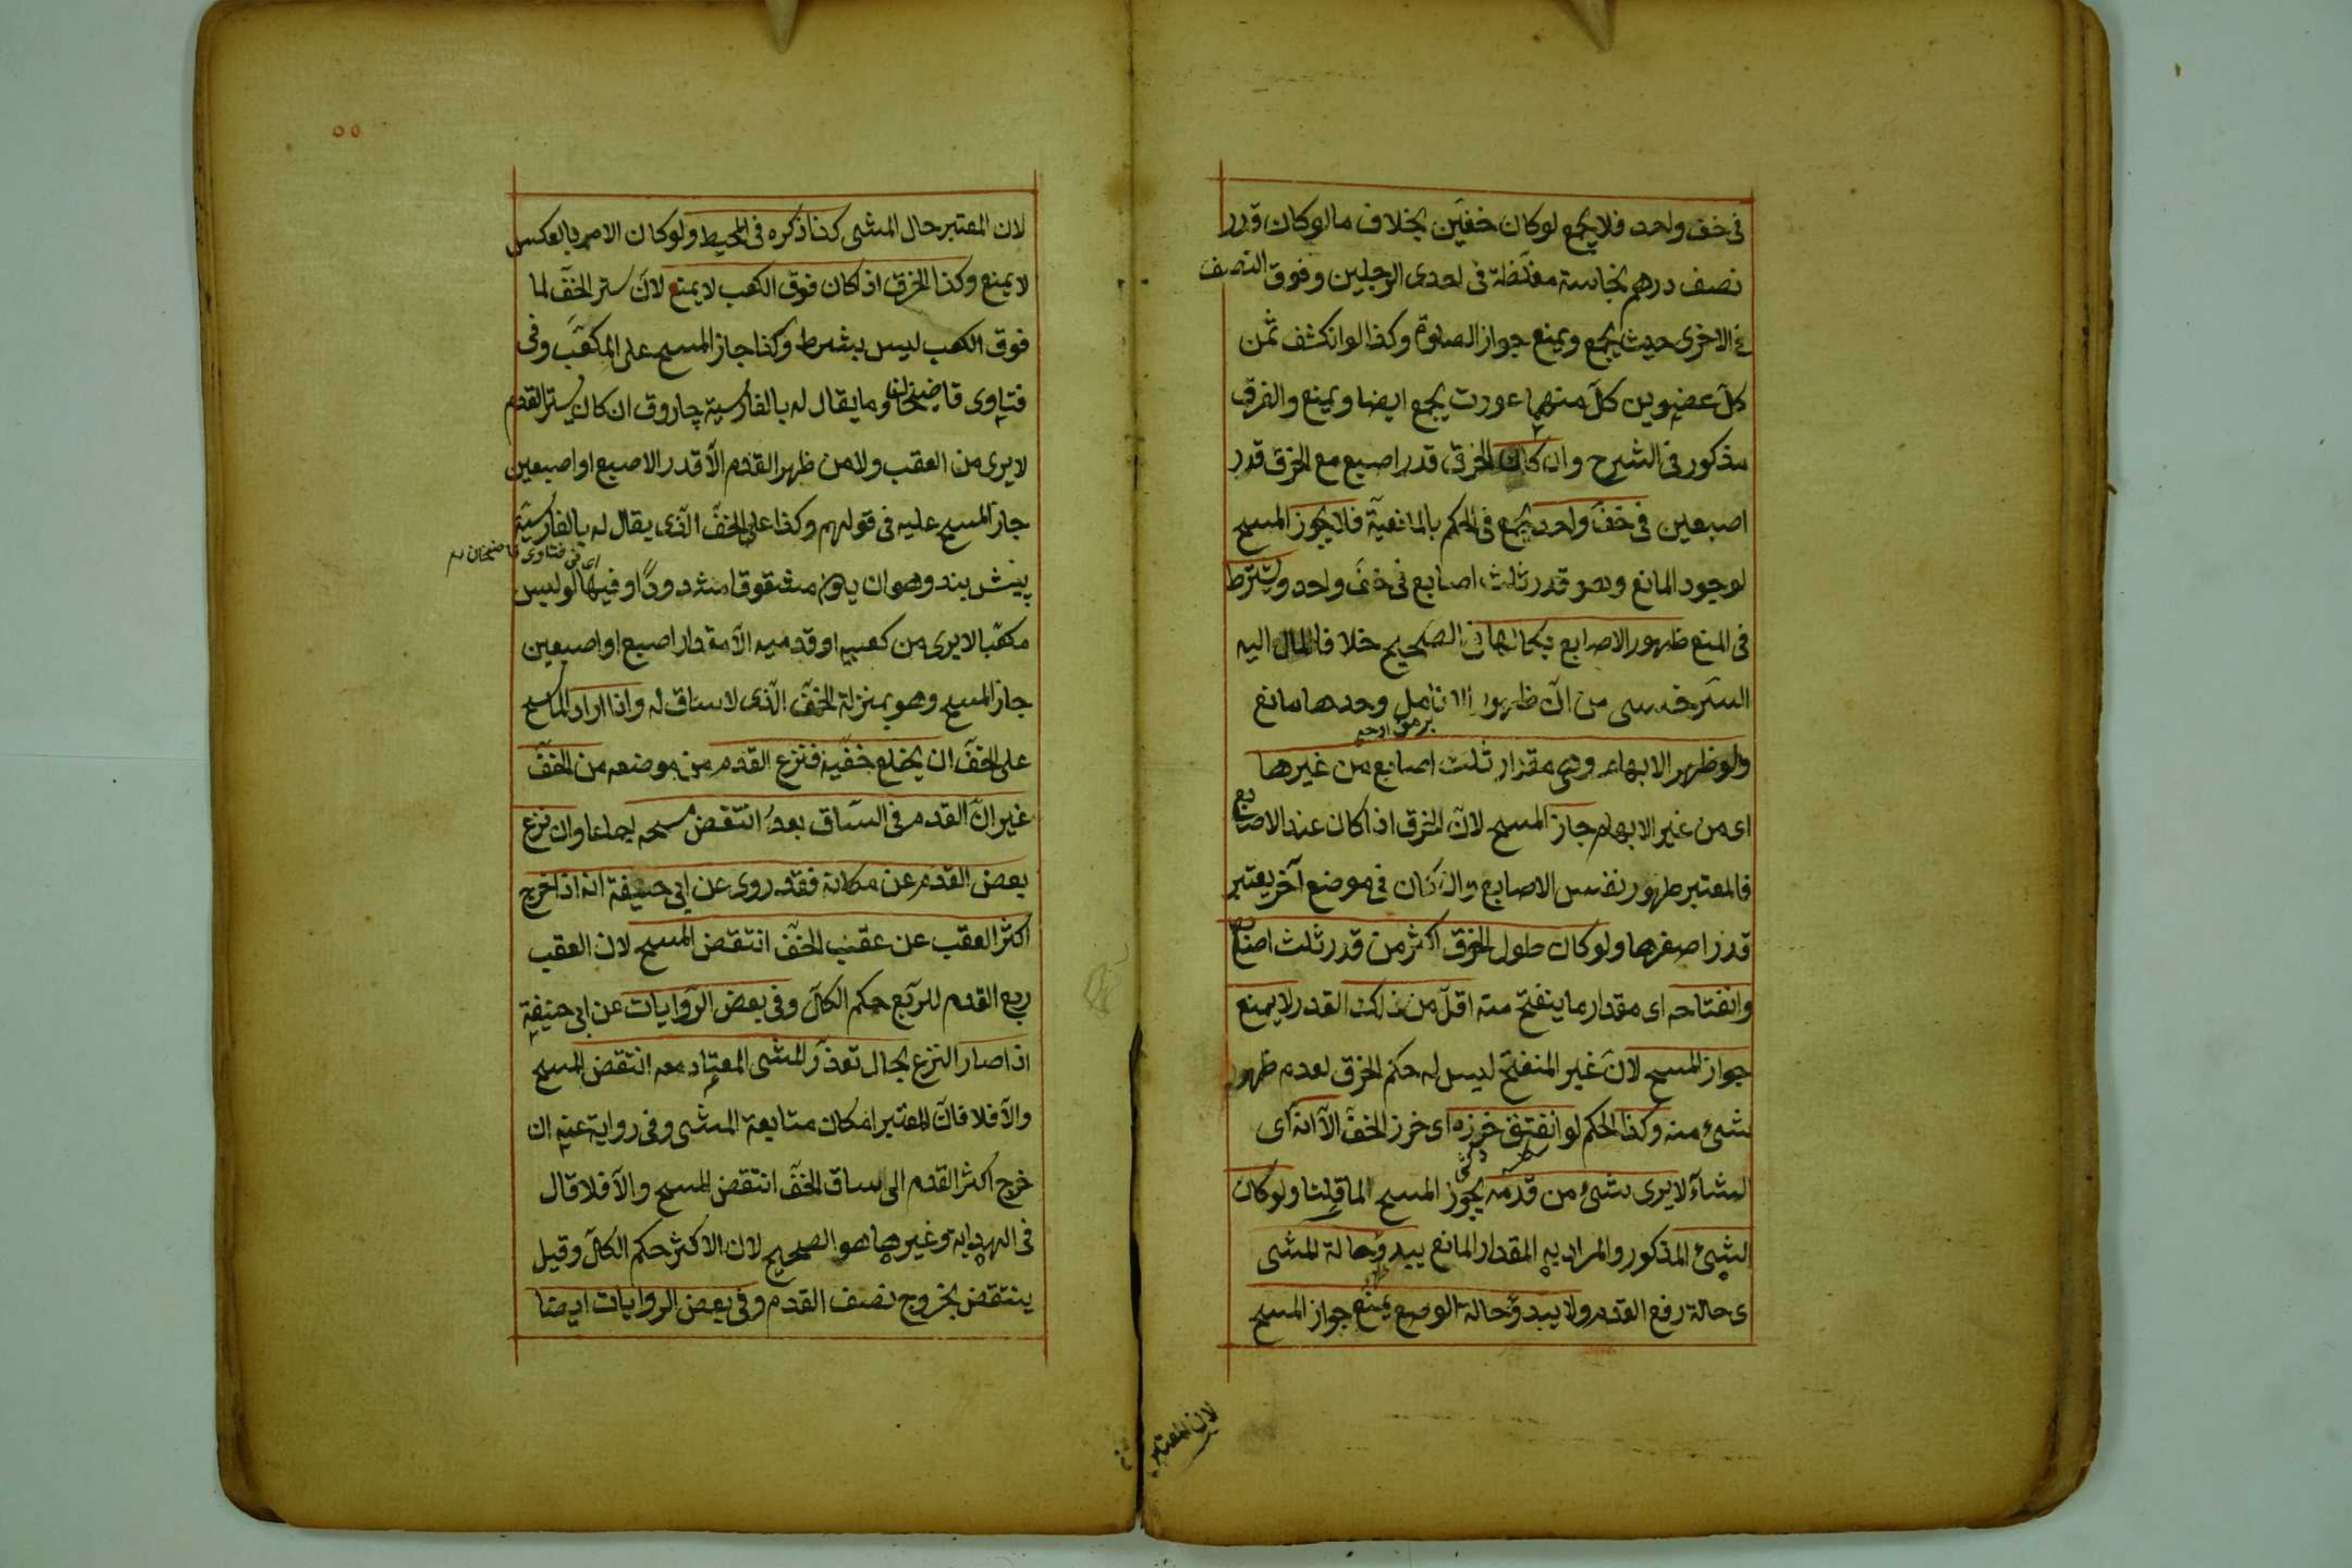 فى خف واحد فلا يجمع لو كان خفين بخلاف ما لو كان قدر
نصف درهم نجاسة مغلّظة فى احدى الرجلين وفوق النصف
فى الاخرى حيث يجمع ويمنع جواز الصلوة وكذا لو انكشف ثمن
كلّ عضوين كلّ منهما عورت يجمع ايضا ويمنع والفرق
مذكور فى الشرح وان كان الخرق قدر اصبع مع الخرق قدر
اصبعين فى خفّ واحد يجمع فى الحكم بالمانعيّة فلا يجوز المسح
لوجود المانع وهو قدر ثلث اصابع فى خفّ واحد ويشترط
فى المنع ظهور الاصابع بكمالها فى الصحيح خلافا لما مال اليه
السّرخسى من انّ ظهور الانامل وحدها مانع
ولو ظهر الابهام وهى مقدار ثلث اصابع من غيرها
اى من غير الابهام جاز المسح لانّ الخرق اذا كان عند الاصابع
فالمعتبر ظهور نفس الاصابع وان كان فى موضع آخر يعتبر
قدر اصغرها ولو كان طول الخرق اكثر من قدر ثلث اصابع
وانفتاحه اى مقدار ما ينفتح منه اقلّ من ذلك القدر لا يمنع
جواز المسح لانّ غير المنفتح ليس له حكم الخرق لعدم ظهور
شئ منه وكذا الحكم لو انفتق خرزه اى خرز الخفّ الّا انّه اى
الشأن لا يرى شئ من قدمه يجوز المسح لما قلنا ولو كان
الشئ المذكور والمراد به المقدار المانع يبدو حالة المشى
ى حالة رفع القدم ولا يبدو حالة الوضع يمنع جواز المسح
لان المعتبر
٥٥
لان المعتبر حال المشى كذا ذكره فى المحيط ولو كان الامر بالعكس
لا يمنع وكذا الخرق اذا كان فوق الكعب لا يمنع لانّ ستر الخفّ لما
فوق الكعب ليس بشرط وكذا جاز المسح على المكعّب وفى
فتاوى قاضيخان وما يقال له بالفارسية چاروق ان كان يستر القدم
لا يرى من العقب ولا من ظهر القدم الّا قدر الاصبع او اصبعين
جاز المسح عليه فى قولهم وكذا على الخفّ الّذى يقال له بالفارسيّة
اى فى فتاوى قاضيخان
پيش بند وهو ان يكون مشقوقا مشدودًا وفيها لو لبس
مكعّبا لا يرى من كعبيه او قدميه الّا مقدار اصبع او اصبعين
جاز المسح وهو بمنزلة الخفّ الّذى لا ساق له واذا اراد الماسح
على الخفّ ان يخلع خفّيه فنزع القدم من موضعه من الخفّ
غير انّ القدم فى السّاق بعد انتقض مسحه اجماعا وان نزع
بعض القدم عن مكانه فقد روى عن ابى حنيفة انه اذا خرج
اكثر العقب عن عقب الخفّ انتقض المسح لان العقب
ربع القدم للرّبع حكم الكلّ وفى بعض الرّوايات عن ابى حنيفة
اذا صار النزع بحال تعذّر المشى المعتاد معه انتقض المسح
والّا فلا فانّ المعتبر امكان متابعة المشى وفى رواية عنه ان
خرج اكثر القدم الى ساق الخفّ انتقض المسح والّا فلا قال
فى الهداية وغيرها هو الصحيح لان الاكثر حكم الكلّ وقيل
ينتقض بخروج نصف القدم وفى بعض الروايات ايضا